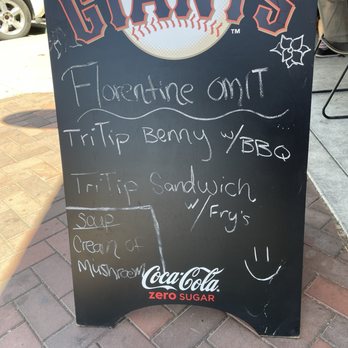 GIANTS
TM
Florentine OMIT
TriTip Benny w/BBQ
TriTip Sandwich
w/Fry's
Soup
Cream of
Mushroom
Coca-Cola
zero SUGAR